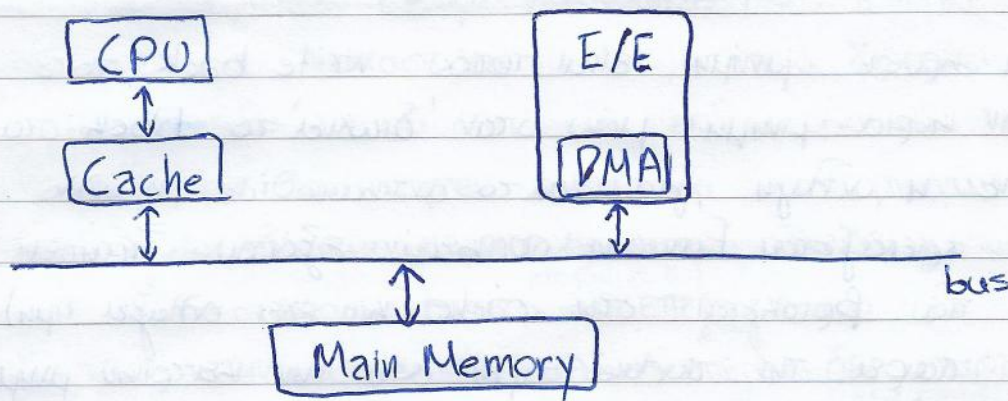 CPU
E/E
Cache
DMA
bus
Main Memory